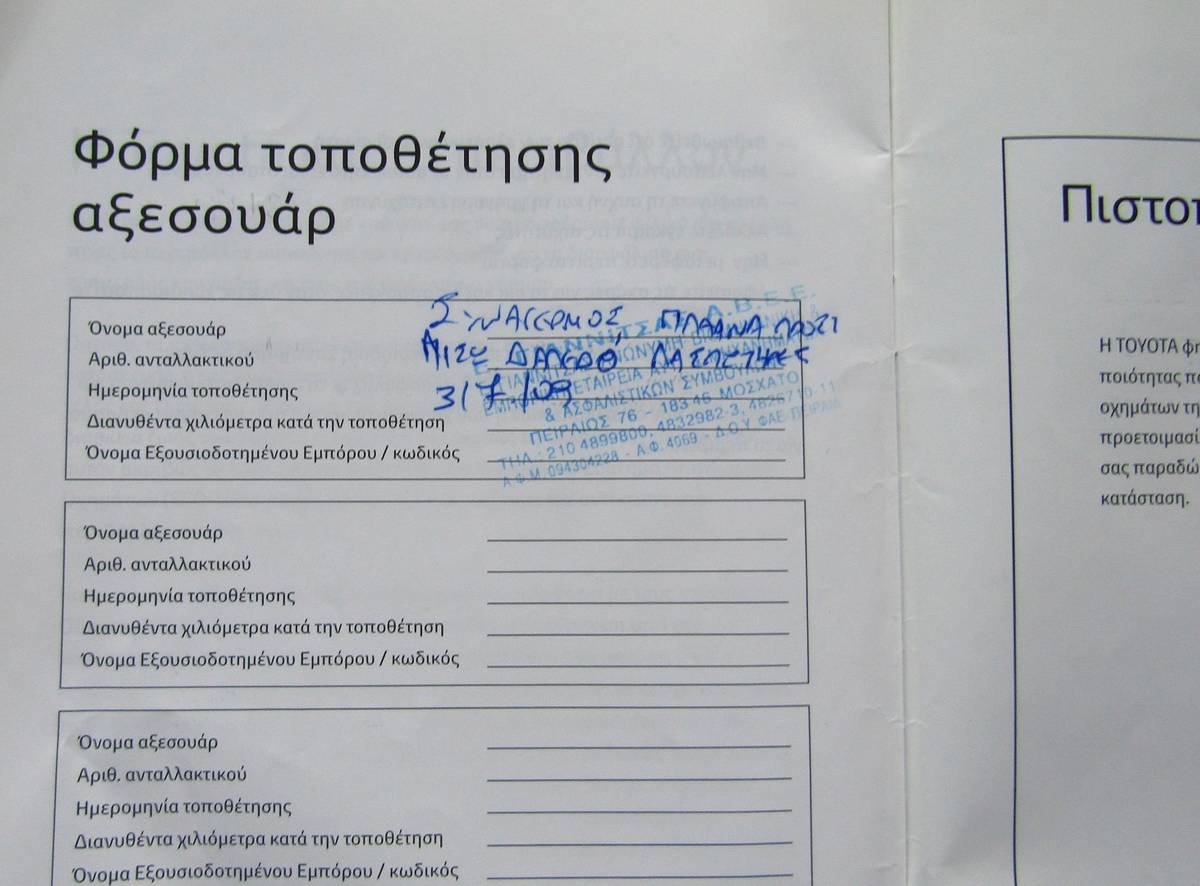 Φόρμα τοποθέτησης
αξεσουάρ
Όνομα αξεσουάρ
Αριθ. ανταλλακτικού
Ημερομηνία τοποθέτησης
Διανυθέντα χιλιόμετρα κατά την τοποθέτηση
Όνομα Εξουσιοδοτημένου Εμπόρου / κωδικός
ΣυνΑΓΕΡΜΟΣ
ΛΑΣΠΩΤΗΡΕΣ
31/7/09
ΓΙΑΝΝΙΤΣΑΣ Α.Β.Ε.Ε.
ΕΤΑΙΡΕΙΑ
& ΑΣΦΑΛΙΣΤΙΚΩΝ ΣΥΜΒΟΥΛΩΝ
ΠΕΙΡΑΙΩΣ 76 - 183 46 ΜΟΣΧΑΤΟ
ΤΗΛ.: 210 4899800, 4832982-3, 4826710-11
Α.Φ.Μ. 094304228 - Α.Φ. 4069 - Δ.Ο.Υ. ΦΑΕ ΠΕΙΡΑΙΑ
Όνομα αξεσουάρ
Αριθ. ανταλλακτικού
Ημερομηνία τοποθέτησης
Διανυθέντα χιλιόμετρα κατά την τοποθέτηση
Όνομα Εξουσιοδοτημένου Εμπόρου / κωδικός
Όνομα αξεσουάρ
Αριθ. ανταλλακτικού
Ημερομηνία τοποθέτησης
Διανυθέντα χιλιόμετρα κατά την τοποθέτηση
Όνομα Εξουσιοδοτημένου Εμπόρου / κωδικός
Πιστοπ
Η TOYOTA φη
ποιότητας πο
οχημάτων τη
προετοιμασί
σας παραδώ
κατάσταση.